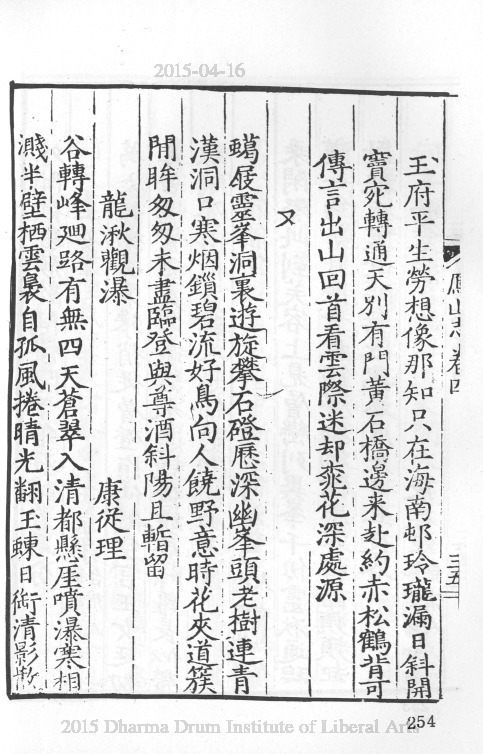 2015-04-16
鳳山志卷四
三五
玉府平生勞想像那知只在海南邨玲瓏漏日斜開
竇宛轉通天別有門黃石橋邊来赴約赤松鶴背可
傳言出山回首看雲際迷却桃花深處源
又
蠟屐靈峯洞裏遊旋攀石磴歷深幽峯頭老樹連青
漢洞口寒烟鎖碧流好鳥向人饒野意時花夾道簇
閒眸匆匆未盡臨登興尊酒斜陽且暫留
龍湫觀瀑
康從理
谷轉峰廻路有無四天蒼翠入清都懸崖噴瀑寒相
濺半壁栖雲裊自孤風捲晴光翻玉蝀日銜清影
2015 Dharma Drum Institute of Liberal Arts
254